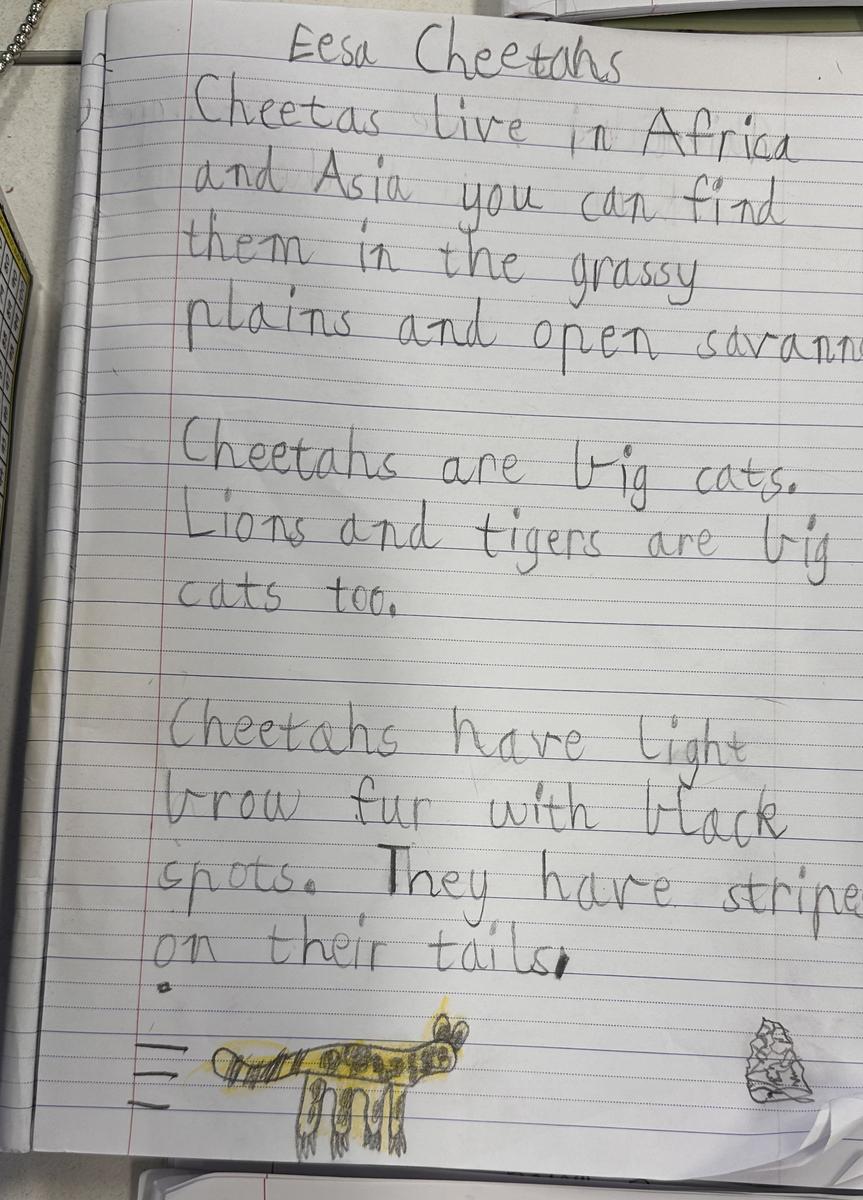 Eesa Cheetahs
Cheetas live in Africa
and Asia you can find
them in the grassy
plains and open savann
Cheetahs are big cats.
Lions and tigers are big
cats too.
Cheetahs have light
brow fur with black
spots. They have stripe
on their tails.